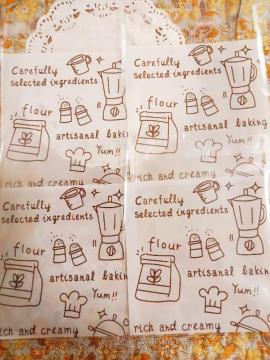 Carefully
selected ingredients
flour
artisanal baking
Yum!!
rich and creamy
Carefully
selected ingredients
flour
artisanal baking
Yum!!
rich and creamy
Carefully
selected ingredients
flour
artisanal bakin
Yum!!
rich and creamy
Carefully
selected ingredients
flour
artisanal baking
Yum!!
rich and creamy